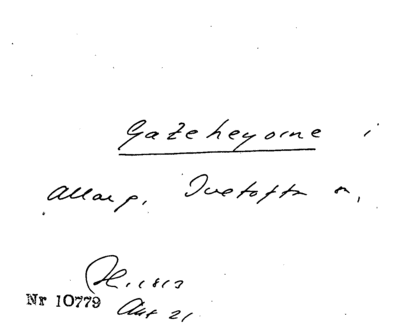 Gateheyorne i
Allarp, Ivetofta
1813
Nr 10779 Akt 21